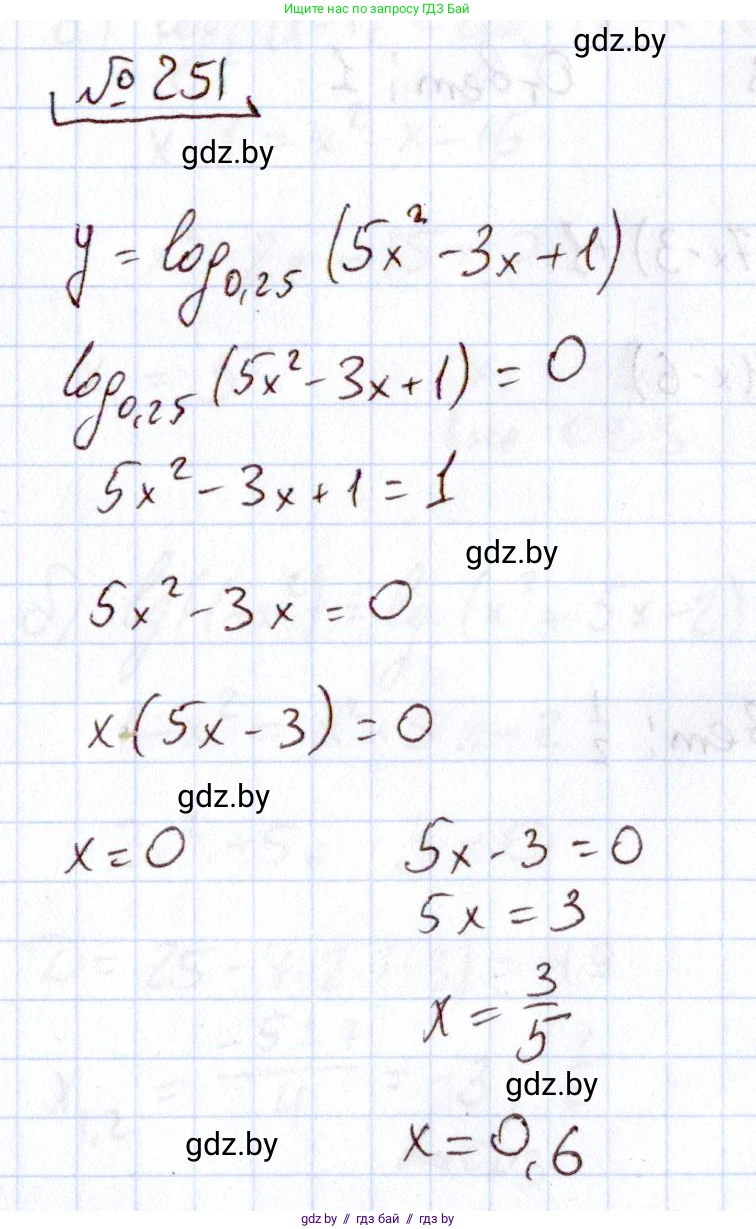 Ищите нас по запросу ГДЗ Бай
gdz.by
№ 251
gdz.by
y = log₀,₂₅ (5x² - 3x + 1)
log₀,₂₅ (5x² - 3x + 1) = 0
5x² - 3x + 1 = 1
gdz.by
5x² - 3x² = 0
x·(5x - 3) = 0
gdz.by
x = 0 5x - 3 = 0
5x = 3
x = 3/5
gdz.by
x = 0,6
gdz.by
gdz.by // гдз бай // гдз by